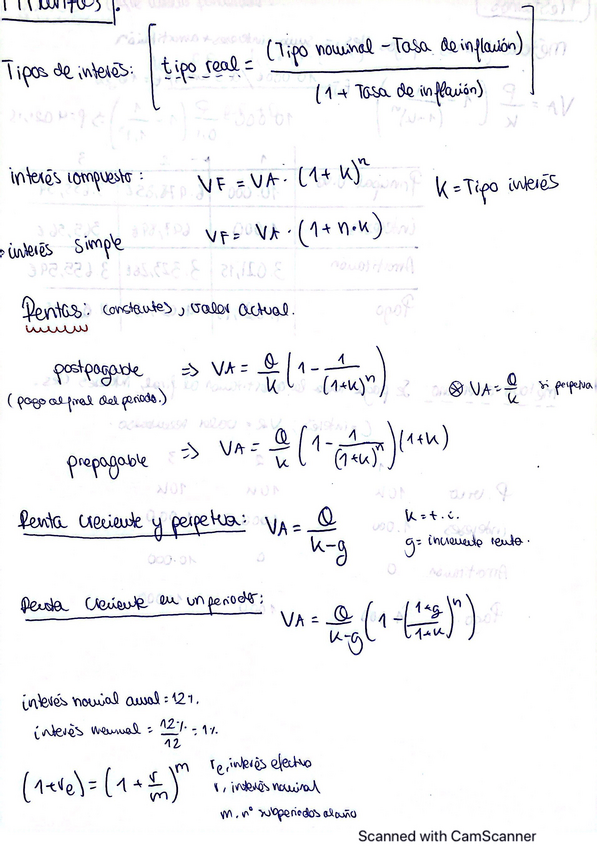 Tipos de interés: [tipo real = (Tipo nominal - Tasa de inflación) / (1 + Tasa de inflación)]
interés compuesto: VF = VA · (1 + k)^n K = Tipo interés
interés simple VF = VA · (1 + n·k)
Rentas: constantes, valor actual.
postpagable => VA = Q/k (1 - 1/(1+k)^n) ⊗ VA = Q/k si perpetua
(pago al final del periodo.)
prepagable => VA = Q/k (1 - 1/(1+k)^n)(1+k)
Renta creciente y perpetua: VA = Q/(k-g) k = t.i.
g = incremento renta.
Renta creciente en un periodo: VA = Q/(k-g) (1 - ((1+g)/(1+k))^n)
interés nomial anual = 12%.
interés mensual = 12%/12 = 1%.
(1+re) = (1 + r/m)^m re, interés efectivo
r, interés nominal
m, nº subperiodos al año
Scanned with CamScanner